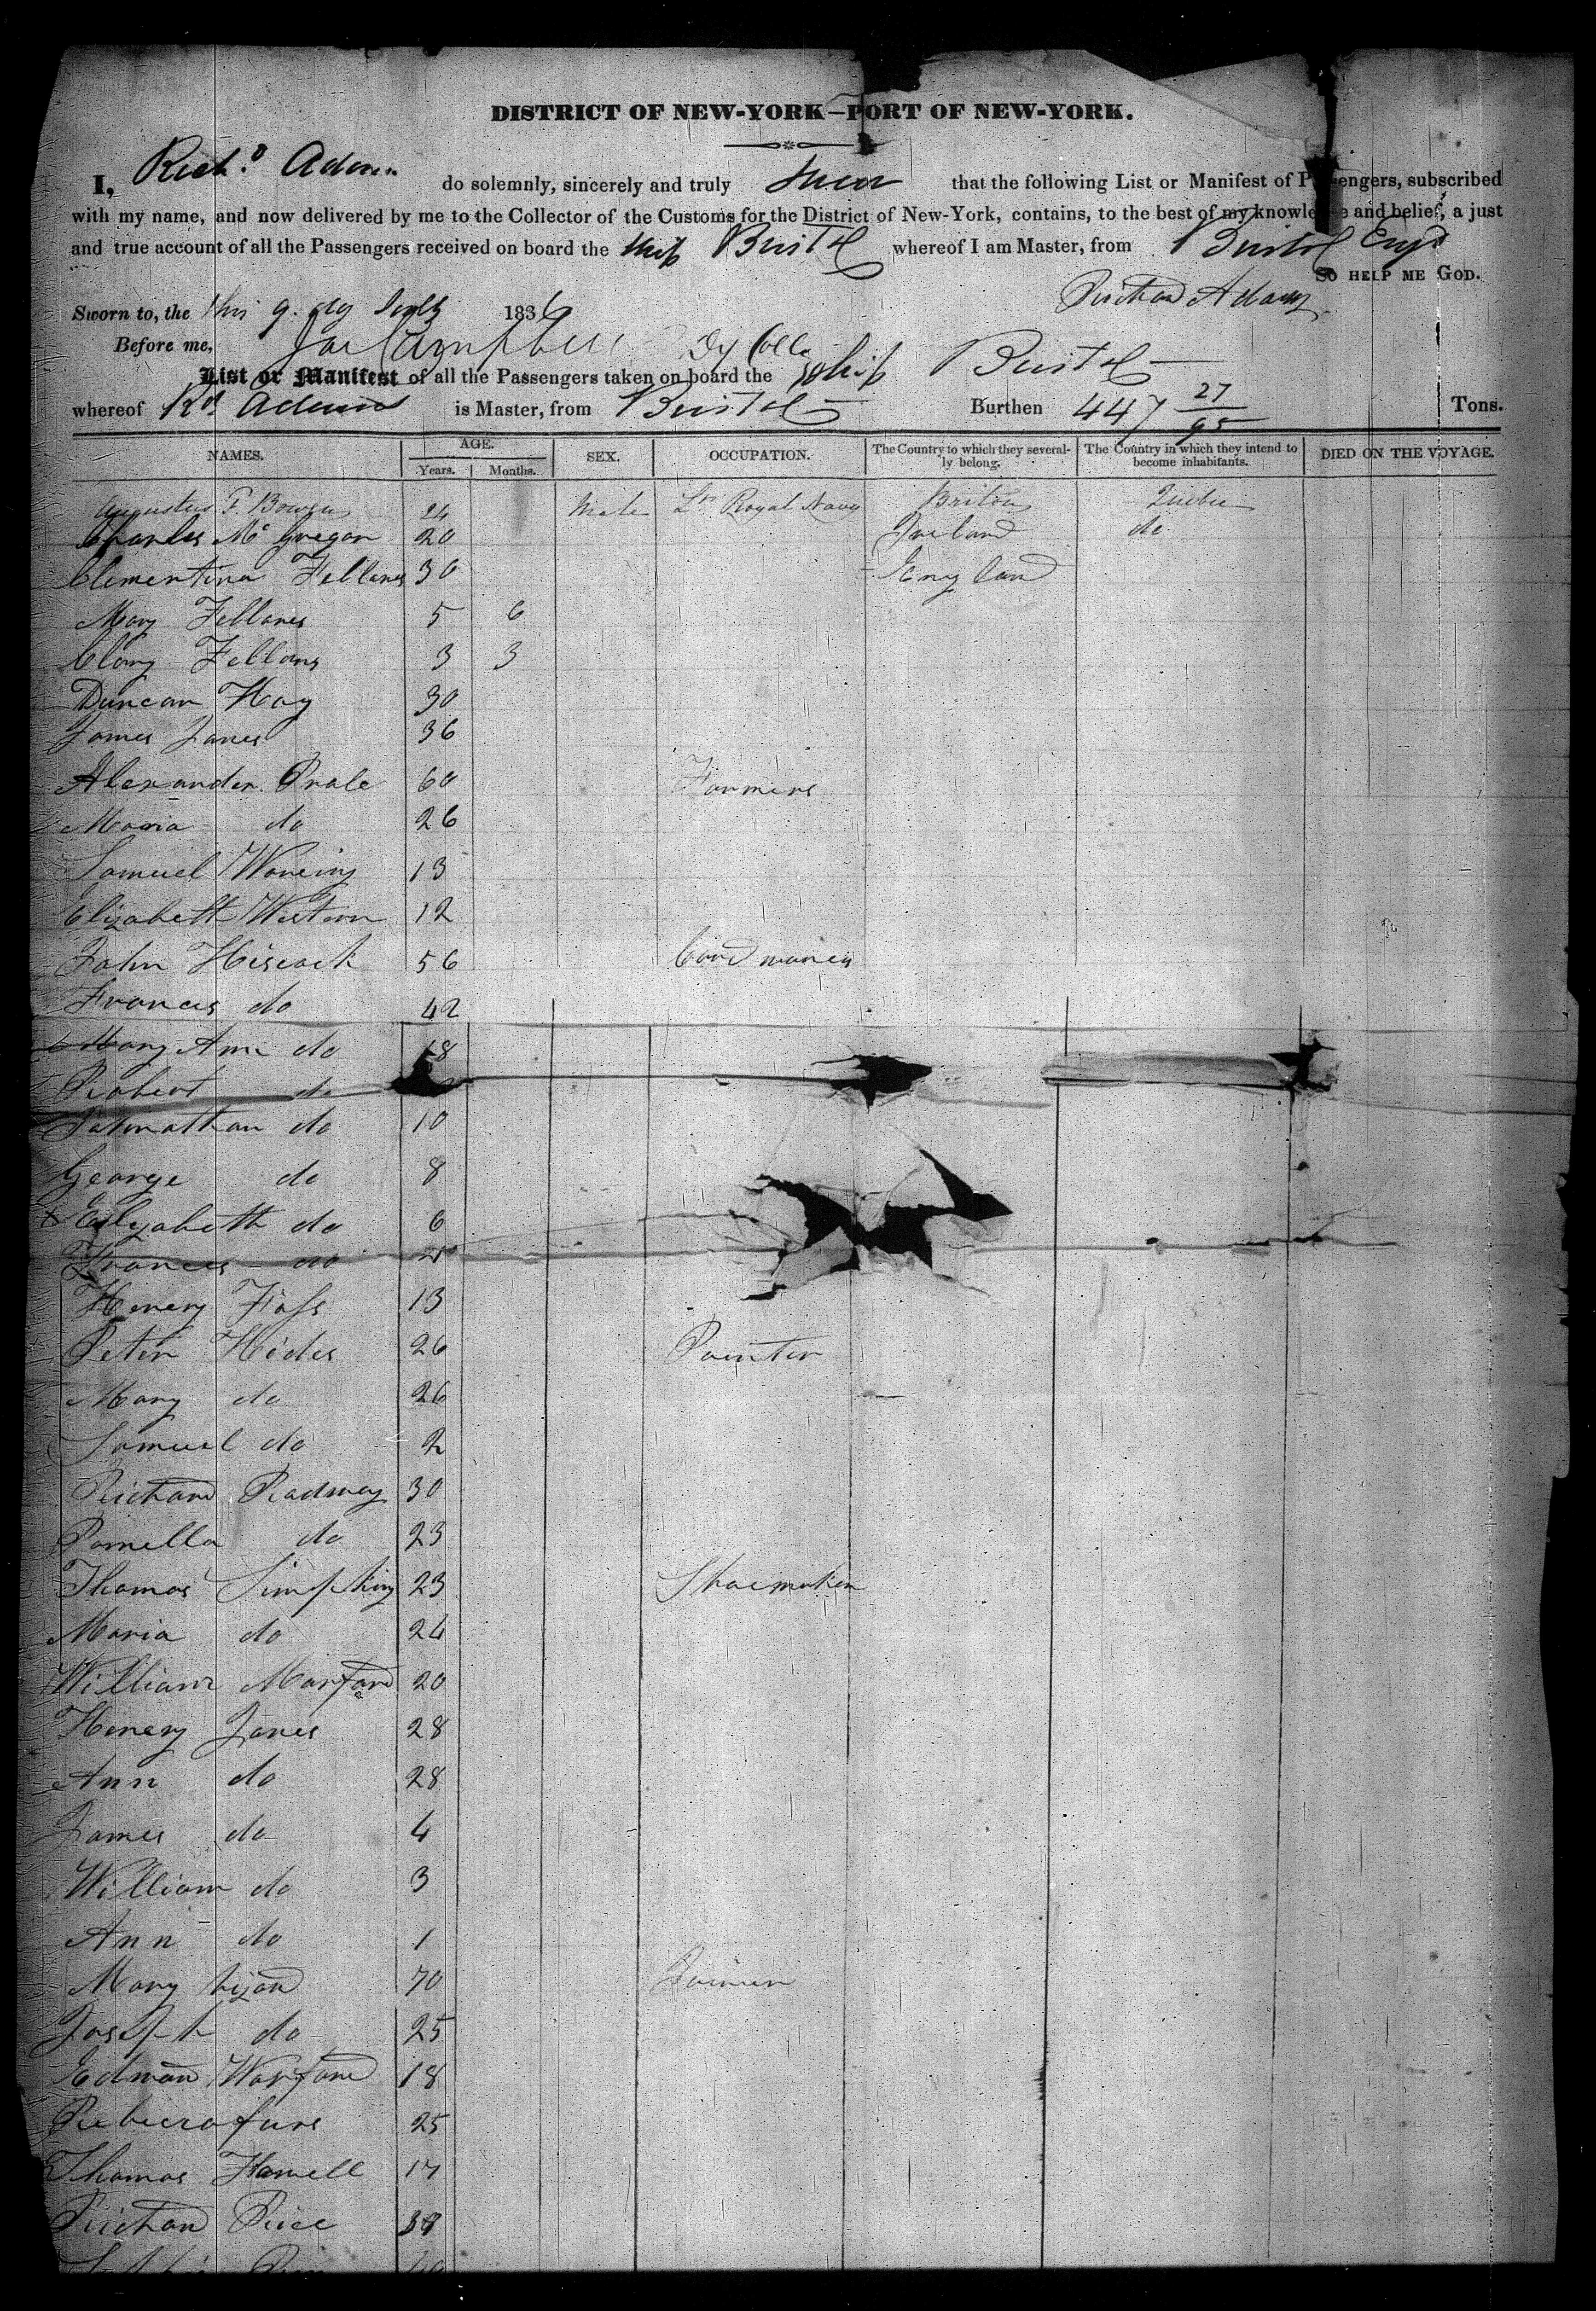 DISTRICT OF NEW-YORK—PORT OF NEW-YORK.
I, Rich.d Adams do solemnly, sincerely and truly swear that the following List or Manifest of Passengers, subscribed
with my name, and now delivered by me to the Collector of the Customs for the District of New-York, contains, to the best of my knowledge and belief, a just
and true account of all the Passengers received on board the Ship Bristol whereof I am Master, from Bristol Engd
SO HELP ME GOD.
Sworn to, the this 9. day 1836 Richard Adams
Before me, Campbell Dy Colle
List or Manifest of all the Passengers taken on board the Ship Bristol
whereof Rd Adams is Master, from Bristol Burthen 447 27/95 Tons.
NAMES. AGE. SEX. OCCUPATION. The Country to which they severally belong. The Country in which they intend to become inhabitants. DIED ON THE VOYAGE.
Years. Months.
Augustus F. Bowen 24 Male Lt. Royal Navy Briton Quebec
Charles Mc Gregor 20 Ireland do
Clementina Fellows 30 England
Mary Fellows 5 6
Clary Fellows 3 3
Duncan Hay 30
James Jones 36
Alexander Prale 60 Farmers
Maria do 26
Samuel Wareing 13
Elizabeth Western 12
John Hiscock 56 Cord
Frances do 42
Mary Ann do 18
Robert do
Johnathan do 10
George do 8
Elizabeth do 6
Frances do
Henery Foss 13
Peter Hides 26 Painter
Mary do 26
Samuel do 2
Richard Radway 30
Pamella do 23
Thomas Simpkins 23 Shoemaker
Maria do 24
William Marfard 20
Henery Jones 28
Ann do 28
James do 4
William do 3
Ann do 1
Mary 70 Joiner
Joseph do 25
Edman Warford 18
25
Thomas Hamell 17
Richard Price